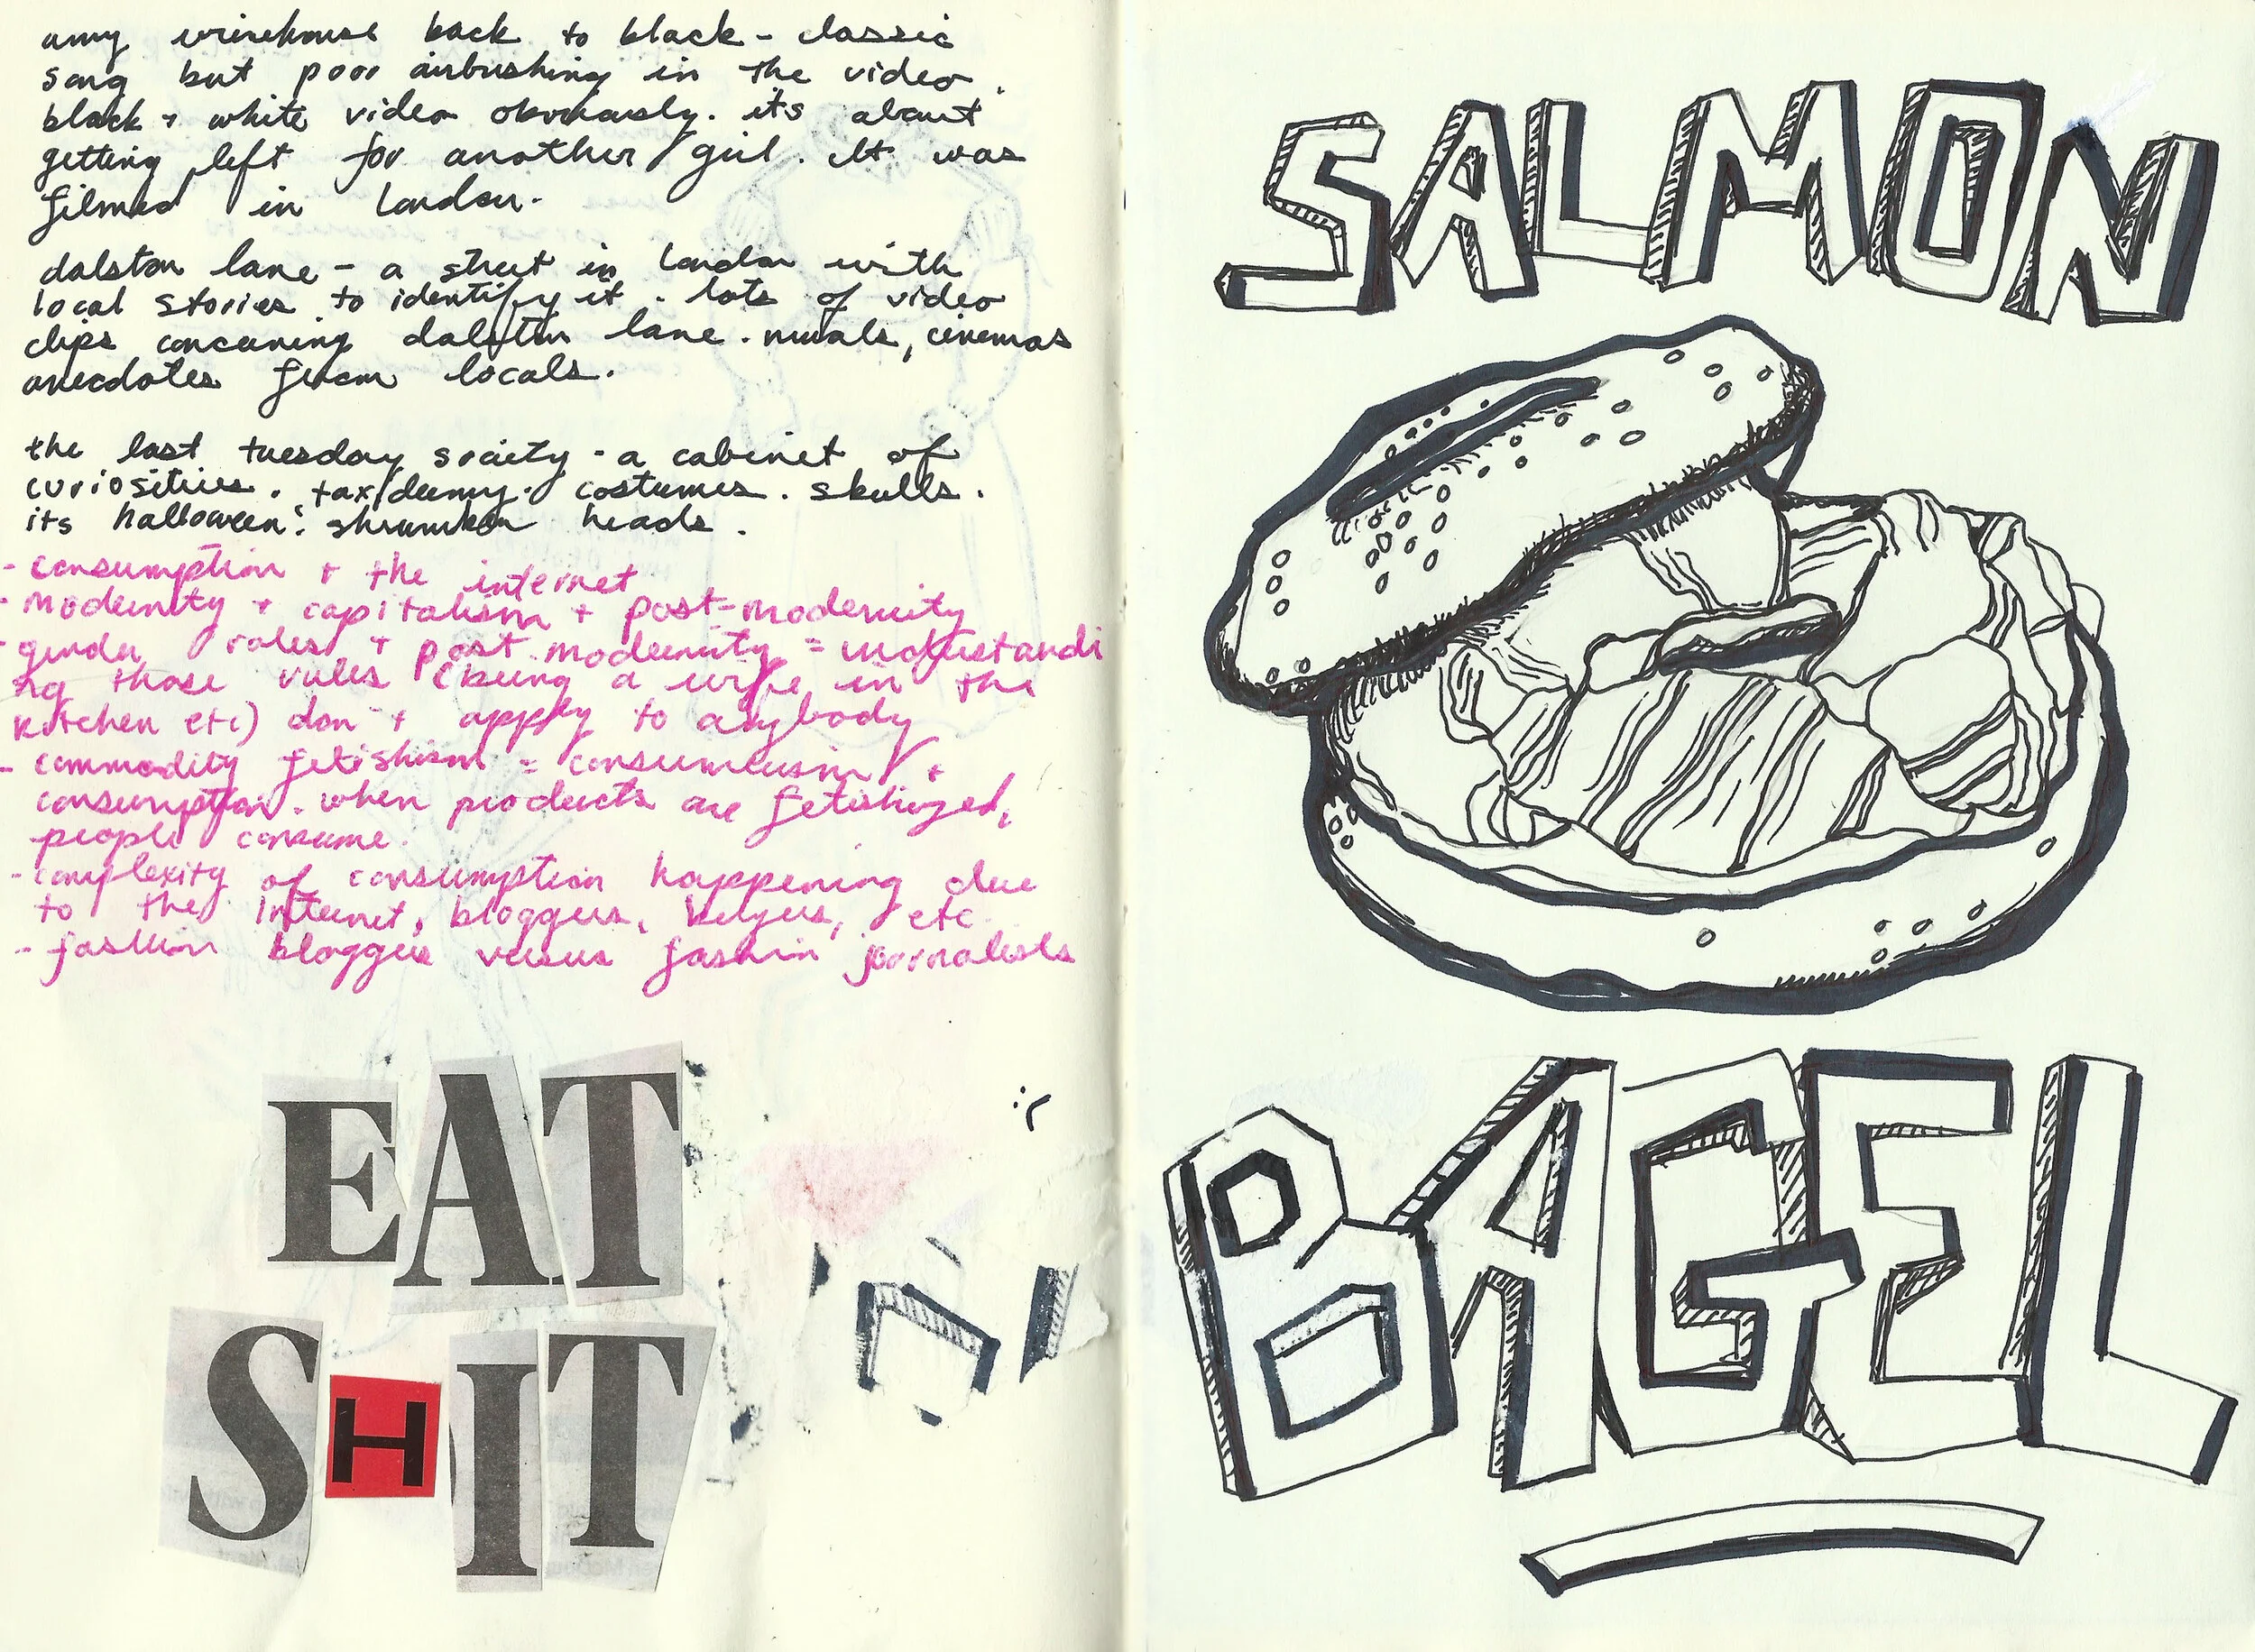 amy winehouse back to black - classic
song but poor airbushing in the video.
black + white video obviously. its about
getting left for another girl. It was
filmed in london.
dalston lane - a street in london with
local stories to identify it. lots of video
clips concerning dalston lane. murals, cinemas
anecdotes from locals.
the last tuesday society - a cabinet of
curiosities. taxidermy. costumes. skulls.
its halloween! shrunken heads.
- consumption + the internet
- modernity + capitalism + post-modernity
- gender roles + post modernity = understandi
ng those rules (being a wife in the
kitchen etc) don't apply to anybody
- commodity fetishism = consumerism +
consumption. when products are fetishized,
people consume.
- complexity of consumption happening due
to the internet, bloggers, buyers, etc.
- fashion bloggers versus fashion journalists
EAT
SHIT
:(
SALMON
BAGEL